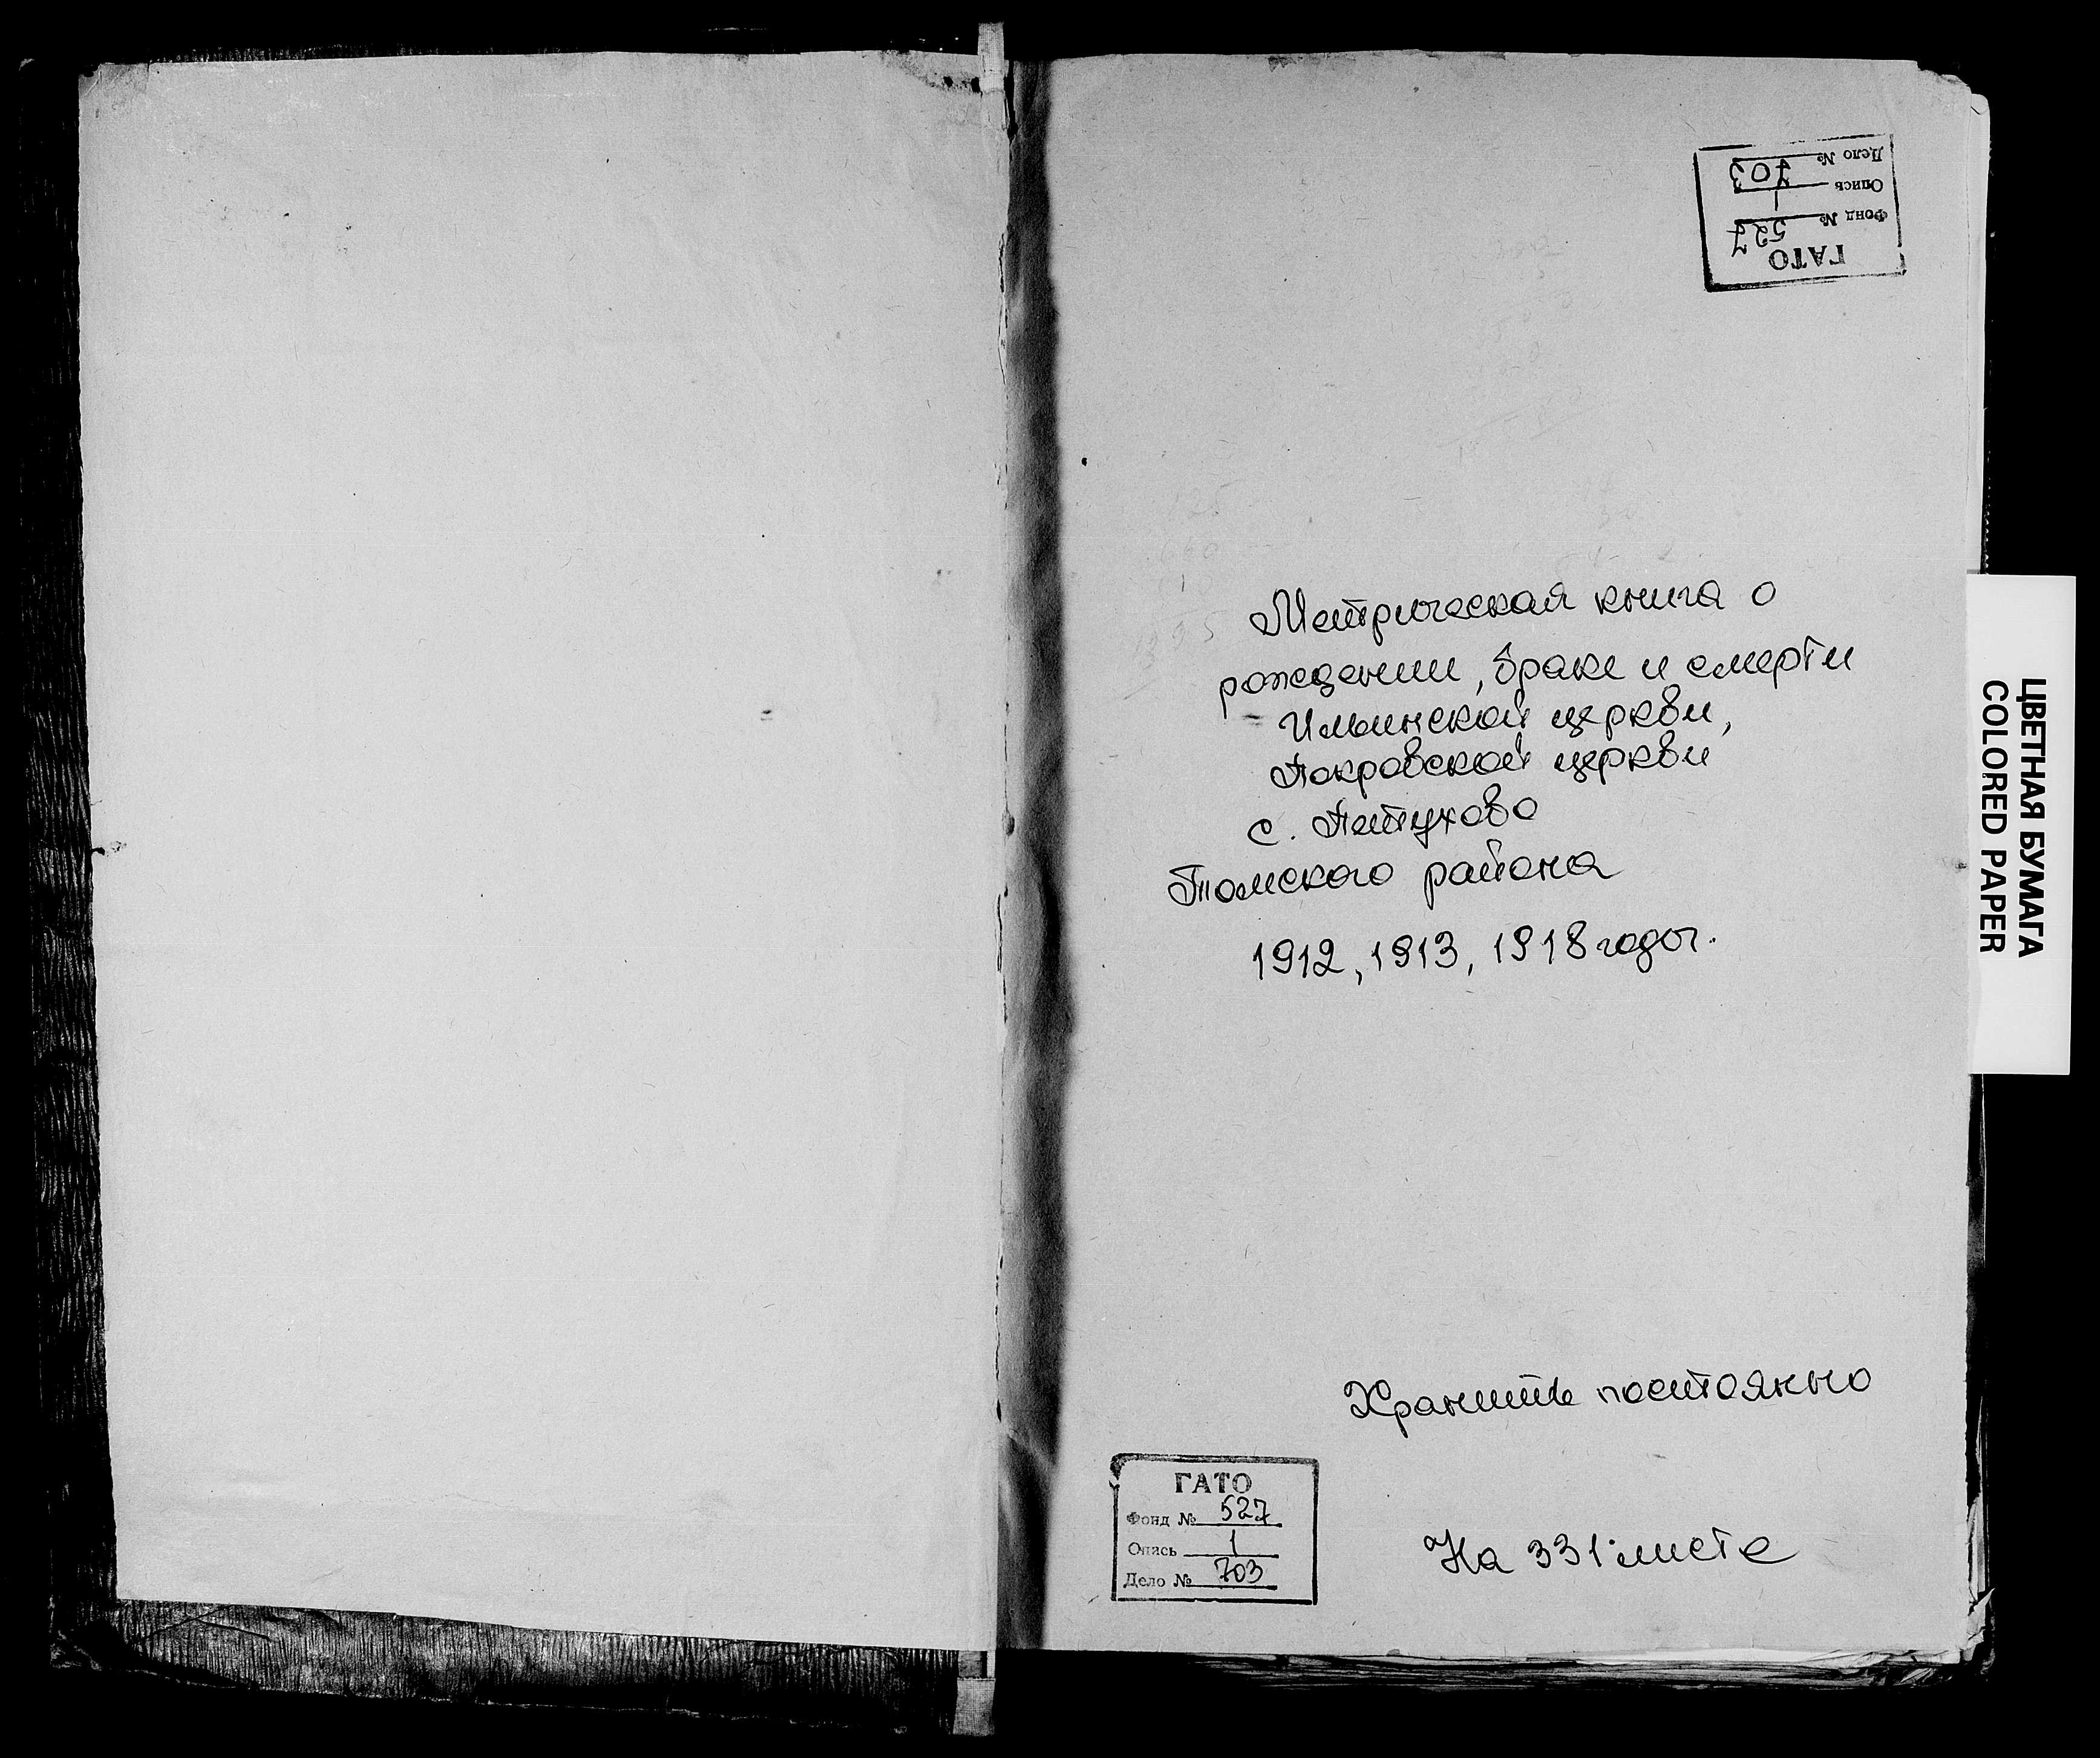 ГАТО
Фонд № 527
Опись 1
Дело № 703
Метрическая книга о
рождении, браке и смерти
Ильинской церкви,
Покровской церкви
с. Петухово
Томского района
1912, 1913, 1918 годы.
ЦВЕТНАЯ БУМАГА
COLORED PAPER
Хранить постоянно
ГАТО
Фонд № 527
Опись 1
Дело № 703
На 331 листе